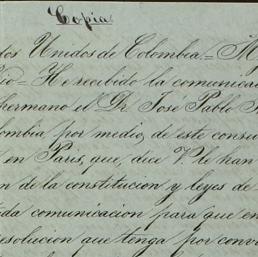 Copia
dos Unidos de Colombia.= M
cio= He recibido la comunica
hermano el Dr José Pablo
ombia por medio de este consu
en Paris, que, dice V. le han
n de la constitucion y leyes de
ada comunicacion para que en
resolucion que tenga por conv